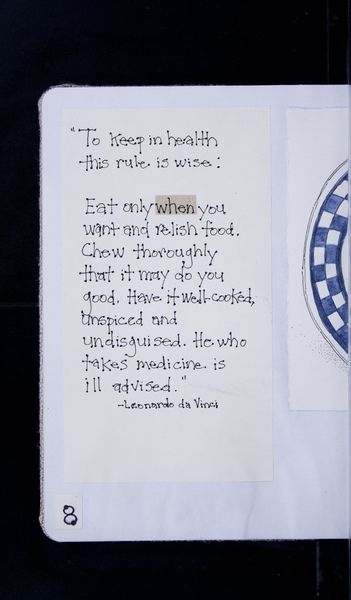 "To keep in health
this rule is wise:
Eat only when you
want and relish food.
Chew thoroughly
that it may do you
good. Have it well-cooked,
unspiced and
undisguised. He who
takes medicine is
ill advised."
-Leonardo da Vinci
8